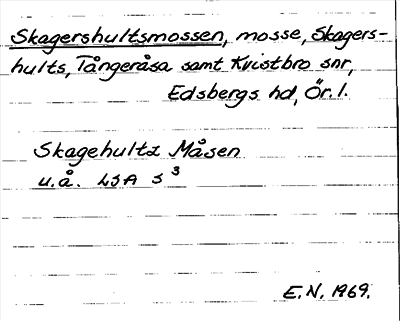 Skagershultsmossen, mosse, Skagers-
hults, Tångeråsa samt Kvistbro snr,
Edsbergs hd, Ör. l.
Skagehultz Måsen
u.å. LSA S 3
E.N. 1969.